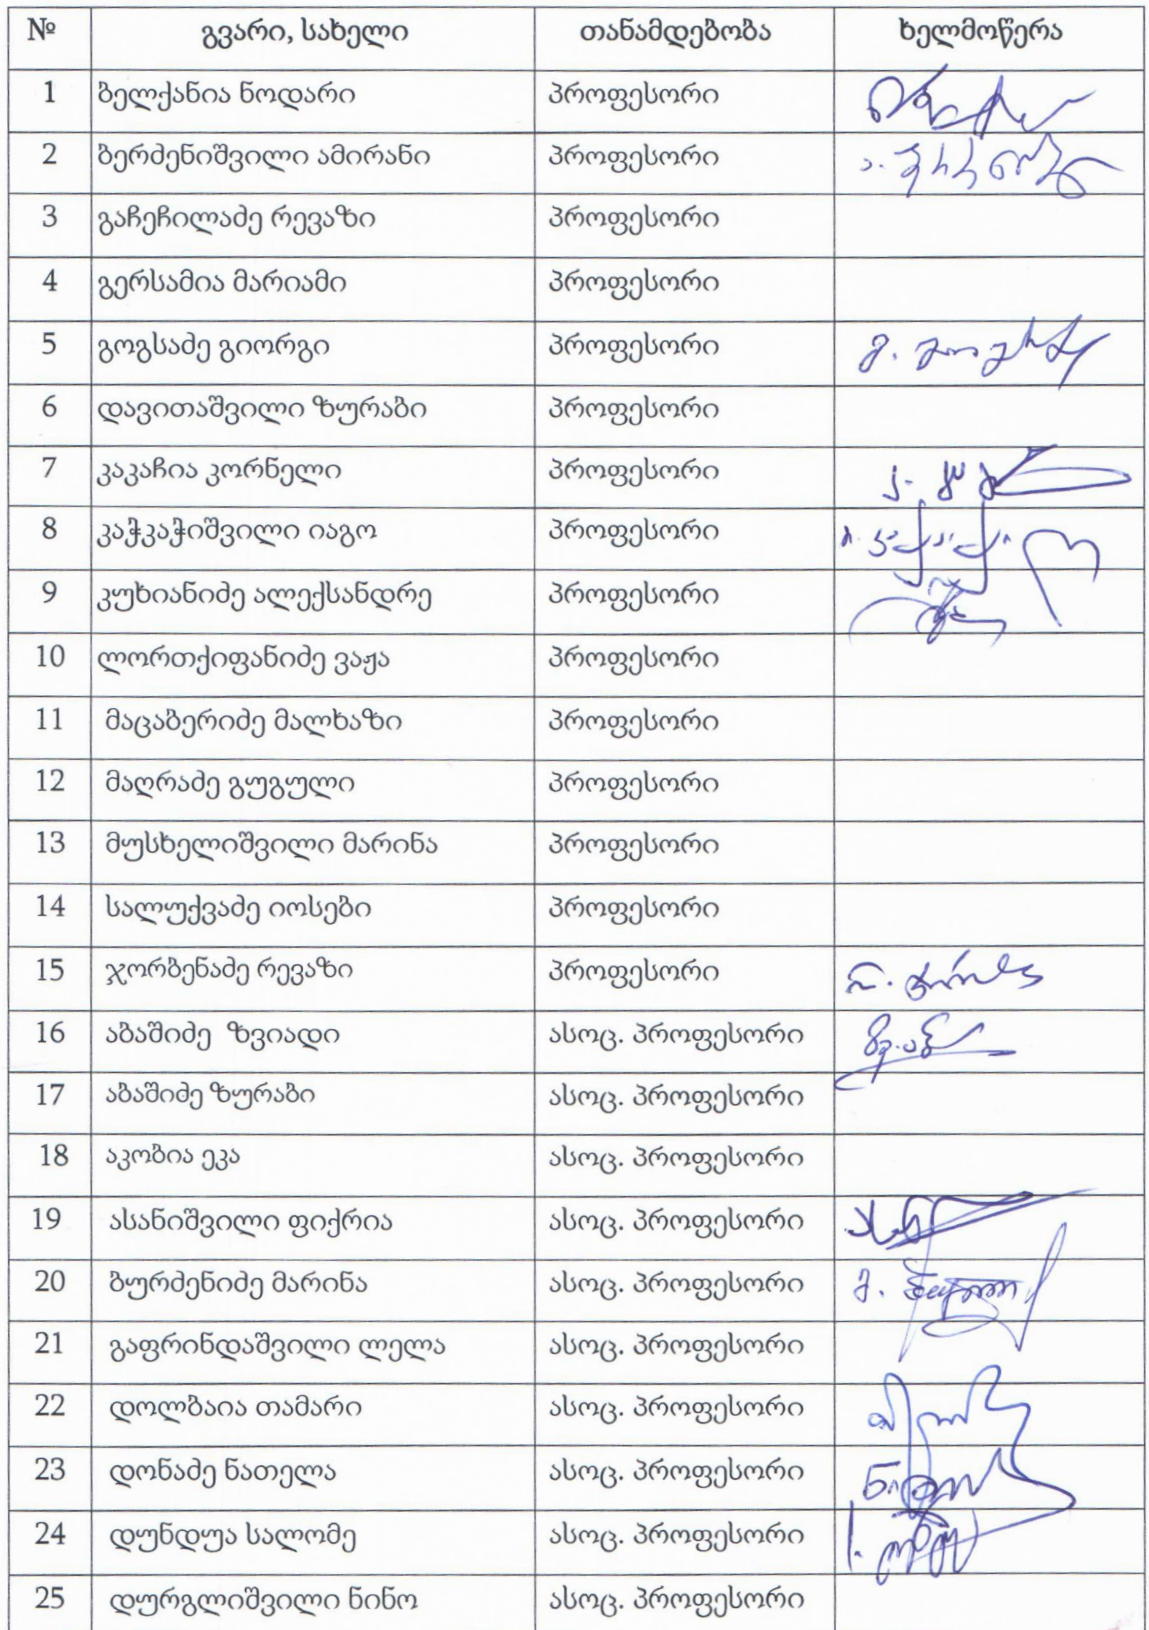 № გვარი, სახელი თანამდებობა ხელმოწერა
1 ბელქანია ნოდარი პროფესორი
2 ბერძენიშვილი ამირანი პროფესორი
3 გაჩეჩილაძე რევაზი პროფესორი
4 გერსამია მარიამი პროფესორი
5 გოგსაძე გიორგი პროფესორი
6 დავითაშვილი ზურაბი პროფესორი
7 კაკაჩია კორნელი პროფესორი
8 კაჭკაჭიშვილი იაგო პროფესორი
9 კუხიანიძე ალექსანდრე პროფესორი
10 ლორთქიფანიძე ვაჟა პროფესორი
11 მაცაბერიძე მალხაზი პროფესორი
12 მაღრაძე გუგული პროფესორი
13 მუსხელიშვილი მარინა პროფესორი
14 სალუქვაძე იოსები პროფესორი
15 ჯორბენაძე რევაზი პროფესორი
16 აბაშიძე ზვიადი ასოც. პროფესორი
17 აბაშიძე ზურაბი ასოც. პროფესორი
18 აკობია ეკა ასოც. პროფესორი
19 ასანიშვილი ფიქრია ასოც. პროფესორი
20 ბურძენიძე მარინა ასოც. პროფესორი
21 გაფრინდაშვილი ლელა ასოც. პროფესორი
22 დოლბაია თამარი ასოც. პროფესორი
23 დონაძე ნათელა ასოც. პროფესორი
24 დუნდუა სალომე ასოც. პროფესორი
25 დურგლიშვილი ნინო ასოც. პროფესორი